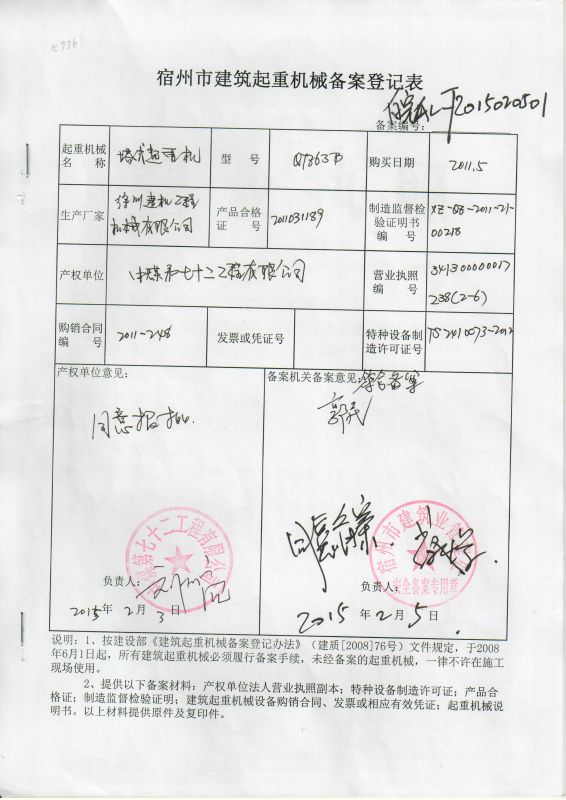 宿州市建筑起重机械备案登记表
备案编号：
2015020501
起重机械名 称
塔式起重机
型 号
QTZ63B
购买日期
2011.5
生产厂家
徐州建机工程机械有限公司
产品合格证 号
201103189
制造监督检验证明书编 号
XZ-QZ-2011-21-00218
产权单位
中煤第七十二工程有限公司
营业执照编 号
341300000017238(2-6)
购销合同编 号
2011-248
发票或凭证号
特种设备制造许可证号
TS2410073-2012
产权单位意见：
同意报批.
备案机关备案意见：
符合备案
同意备案.
第七十二工程有限公司
宿州市建筑业管
安全备案专用章
负责人：
2015年 2月 3日
负责人：
2015年 2月 5日.
说明：1、按建设部《建筑起重机械备案登记办法》（建质[2008]76号）文件规定，于2008
年6月1日起，所有建筑起重机械必须履行备案手续，未经备案的起重机械，一律不许在施工
现场使用。
2、提供以下备案材料：产权单位法人营业执照副本；特种设备制造许可证；产品合
格证；制造监督检验证明；建筑起重机械设备购销合同、发票或相应有效凭证；起重机械说
明书。以上材料提供原件及复印件。